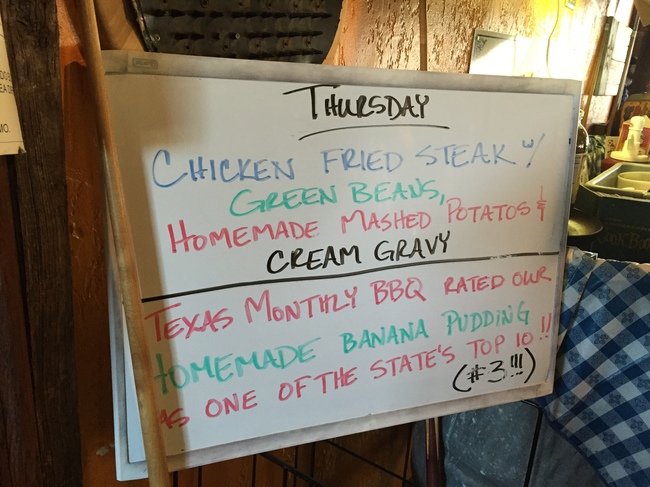 THURSDAY
CHICKEN FRIED STEAK W/
GREEN BEANS,
HOMEMADE MASHED POTATOS &
CREAM GRAVY
TEXAS MONTHLY BBQ RATED OUR
HOMEMADE BANANA PUDDING
AS ONE OF THE STATE'S TOP 10!!
(#3!!!)
MO.